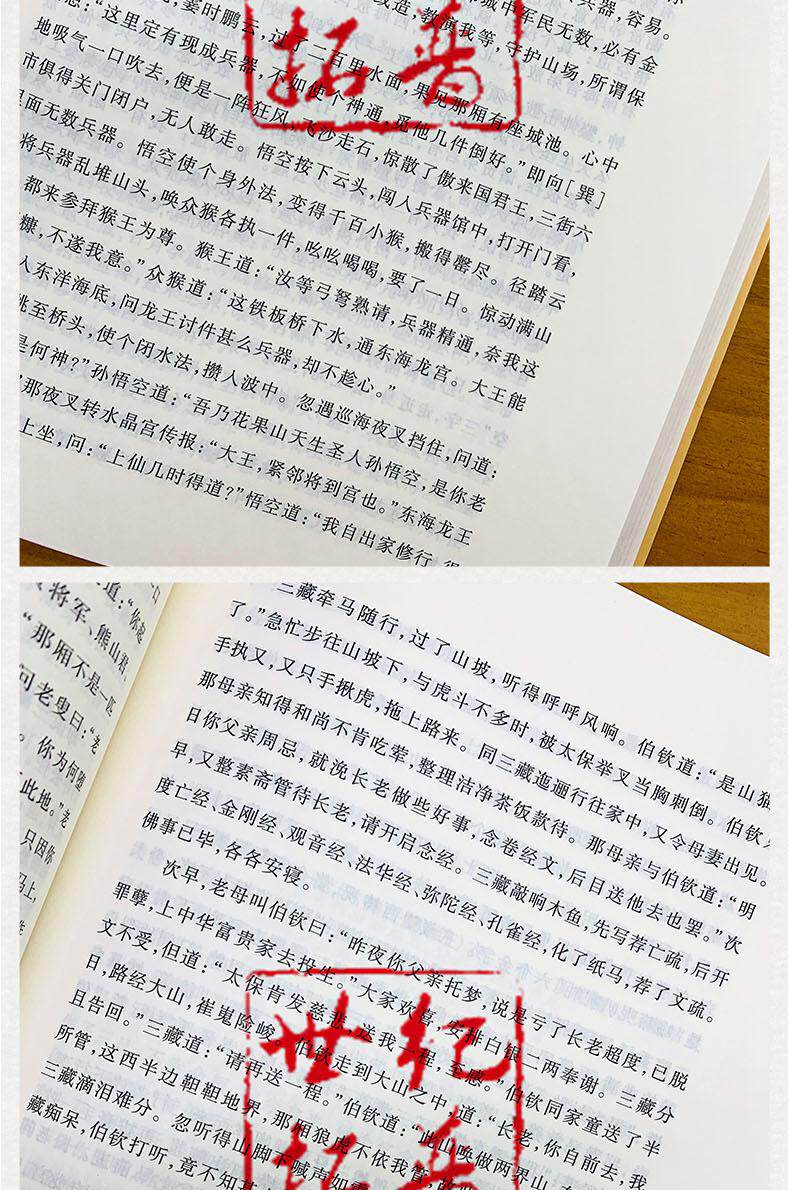 城中军民无数，必有金
兵器，容易。
改造，教演我等，守护山场，所谓保
，霎时鹏云，过了二百里水面，果见那厢有座城池。心中
想：“这里定有现成兵器，不如使个神通，觅他几件倒好。”即向[巽]
地吸气一口吹去，便是一阵狂风，飞沙走石，惊散了傲来国君王，三街六
市俱得关门闭户，无人敢走。悟空按下云头，闯人兵器馆中，打开门看，
里面无数兵器。悟空使个身外法，变得千百小猴，搬得罄尽。径踏云
将兵器乱堆山头，唤众猴各执一件，吆吆喝喝，要了一日。惊动满山
都来参拜猴王为尊。猴王道：“汝等弓弩熟请，兵器精通，奈我这
糠，不遂我意。”众猴道：“这铁板桥下水，通东海龙宫。大王能
人东洋海底，问龙王讨件甚么兵器，却不趁心。”
跳至桥头，使个闭水法，攒人波中。忽遇巡海夜叉挡住，问道：
是何神？”孙悟空道：“吾乃花果山天生圣人孙悟空，是你老
”那夜叉转水晶宫传报：“大王，紧邻将到宫也。”东海龙王
上坐，问：“上仙几时得道？”悟空道：“我自出家修行，得
拓普
道：“你起
将军、熊山君，
“那厢不是一匹
问老叟曰：“老
。你为何堕
此地。”老
，只因你
马上，
三藏牵马随行，过了山坡，听得呼呼风响。伯钦道：“是山猫
了。”急忙步往山坡下，与虎斗不多时，被太保举叉当胸刺倒。伯钦
手执又，又只手揪虎，拖上路来。同三藏迤逦行往家中，又令母妻出见。
那母亲知得和尚不肯吃荤，整理洁净茶饭款待。那母亲与伯钦道：“明
日你父亲周忌，就浼长老做些好事，念卷经文，后目送他去也罢。”次
早，又整素斋管待长老，请开启念经。三藏敲响木鱼，先写荐亡疏，后开
度亡经、金刚经、观音经、法华经、弥陀经、孔雀经，化了纸马，荐了文疏。
佛事已毕，各各安寝。
次早，老母叫伯钦曰：“昨夜你父亲托梦，说是亏了长老超度，已脱
罪孽，上中华富贵家去投生。”大家欢喜，安排白银一两奉谢。三藏分
文不受，但道：“太保肯发慈悲，送我一程，至感。”伯钦同家童送了半
日，路经大山，崔嵬险峻。伯钦走到大山之中，道：“长老，你自前去，我
且告回。”三藏道：“请再送一程。”伯钦道：“此山唤做两界山，东
所管，这西半边鞑靼地界，那厢狼虎不依我管，故
三藏滴泪难分。忽听得山脚下喊声如雷
藏痴呆，伯钦打听，竟不知其
世纪
拓普